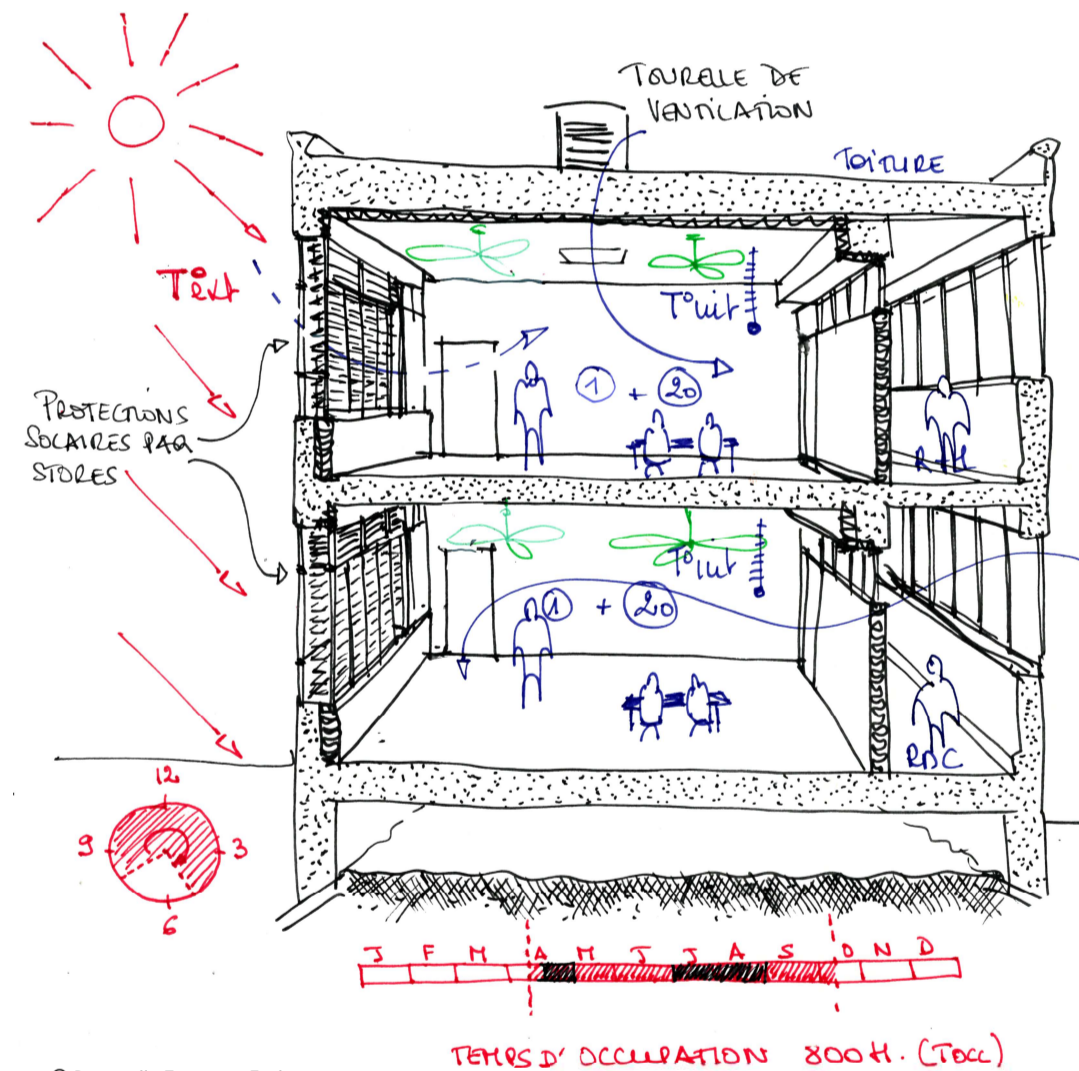 TOURELLE DE
VENTILATION
TOITURE
T°ext
T°int
PROTECTIONS
SOLAIRES PAR
STORES
1 + 20
R+1
T°int
1 + 20
RDC
12
9 3
6
J F M A M J J A S O N D
TEMPS D'OCCUPATION 800H. (TOCC)